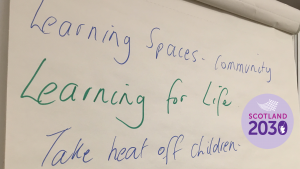 Learning Spaces - Community
Learning for Life
Take heat off children.
SCOTLAND
2030